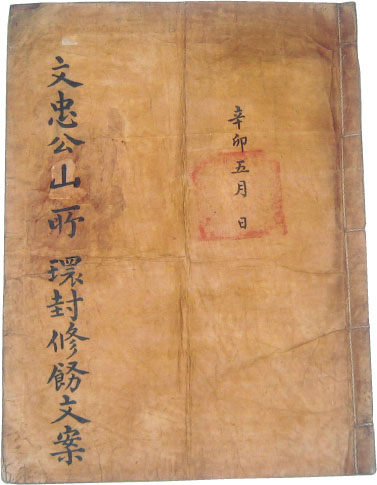 辛卯五月 日
文忠公山所 環封修餝文案